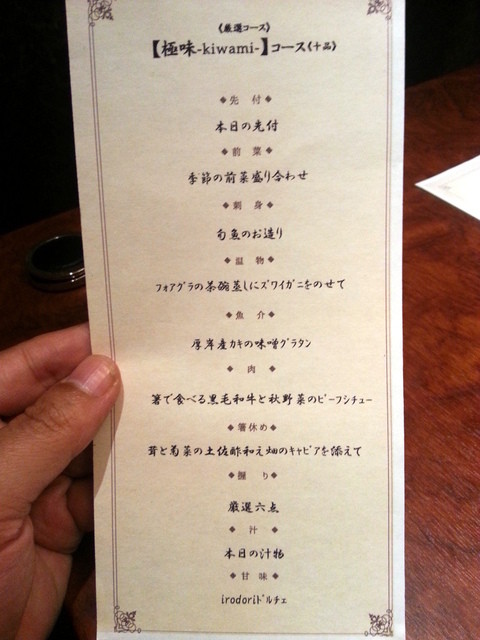 《厳選コース》
【極味-kiwami-】コース《十品》
◆先 付◆
本日の先付
◆前 菜◆
季節の前菜盛り合わせ
◆刺 身◆
旬魚のお造り
◆温 物◆
フォアグラの茶碗蒸しにズワイガニをのせて
◆魚 介◆
厚岸産カキの味噌グラタン
◆ 肉 ◆
箸で食べる黒毛和牛と秋野菜のビーフシチュー
◆箸休め◆
茸と菊菜の土佐酢和え畑のキャビアを添えて
◆握 り◆
厳選六点
◆ 汁 ◆
本日の汁物
◆甘 味◆
irodoriドルチェ